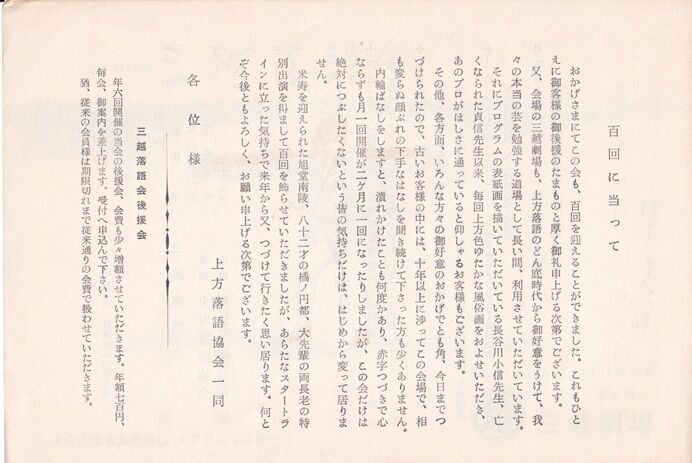 百回に当って
おかげさまにてこの会も、百回を迎えることができました。これもひと
えに御客様の御後援のたまものと厚く御礼申上げる次第でございます。
又、会場の三越劇場も、上方落語のどん底時代から御好意をうけて、我
々の本当の芸を勉強する道場として長い間、利用させていただいています。
それにプログラムの表紙画を描いていただいている長谷川小信先生、亡
くなられた貞信先生以来、毎回上方色ゆたかな風俗画をおよせいただき、
あのプロがほしさに通っていると仰しゃるお客様もございます。
その他、各方面、いろんな方々の御好意のおかげでとも角、今日までつ
づけられたので、古いお客様の中には、十年以上に渉ってこの会場で、相
も変らぬ顔ぶれの下手なはなしを聞き続けて下さった方も少くありません。
内輪ばなしをしますと、潰れかけたことも何度かあり、赤字つづきで心
ならずも月一回開催が二ケ月に一回になったりしましたが、この会だけは
絶対につぶしたくないという皆の気持ちだけは、はじめから変って居りま
せん。
米寿を迎えられた旭堂南陵、八十二才の橘ノ円都、大先輩の両長老の特
別出演を得まして百回を飾らせていただきましたが、あらたなスタートラ
インに立った気持ちで来年から又、つづけて行きたく思い居ります。何と
ぞ今後ともよろしく、お願い申上げる次第でございます。
上方落語協会一同
各位様
三越落語会後援会
年六回開催の当会の後援会、会費も少々増額させていただきます。年額七百円、
毎会、御案内を差上げます。受付へ申込んで下さい。
猶、従来の会員様は期限切れまで従来通りの会費で扱わせていただきます。